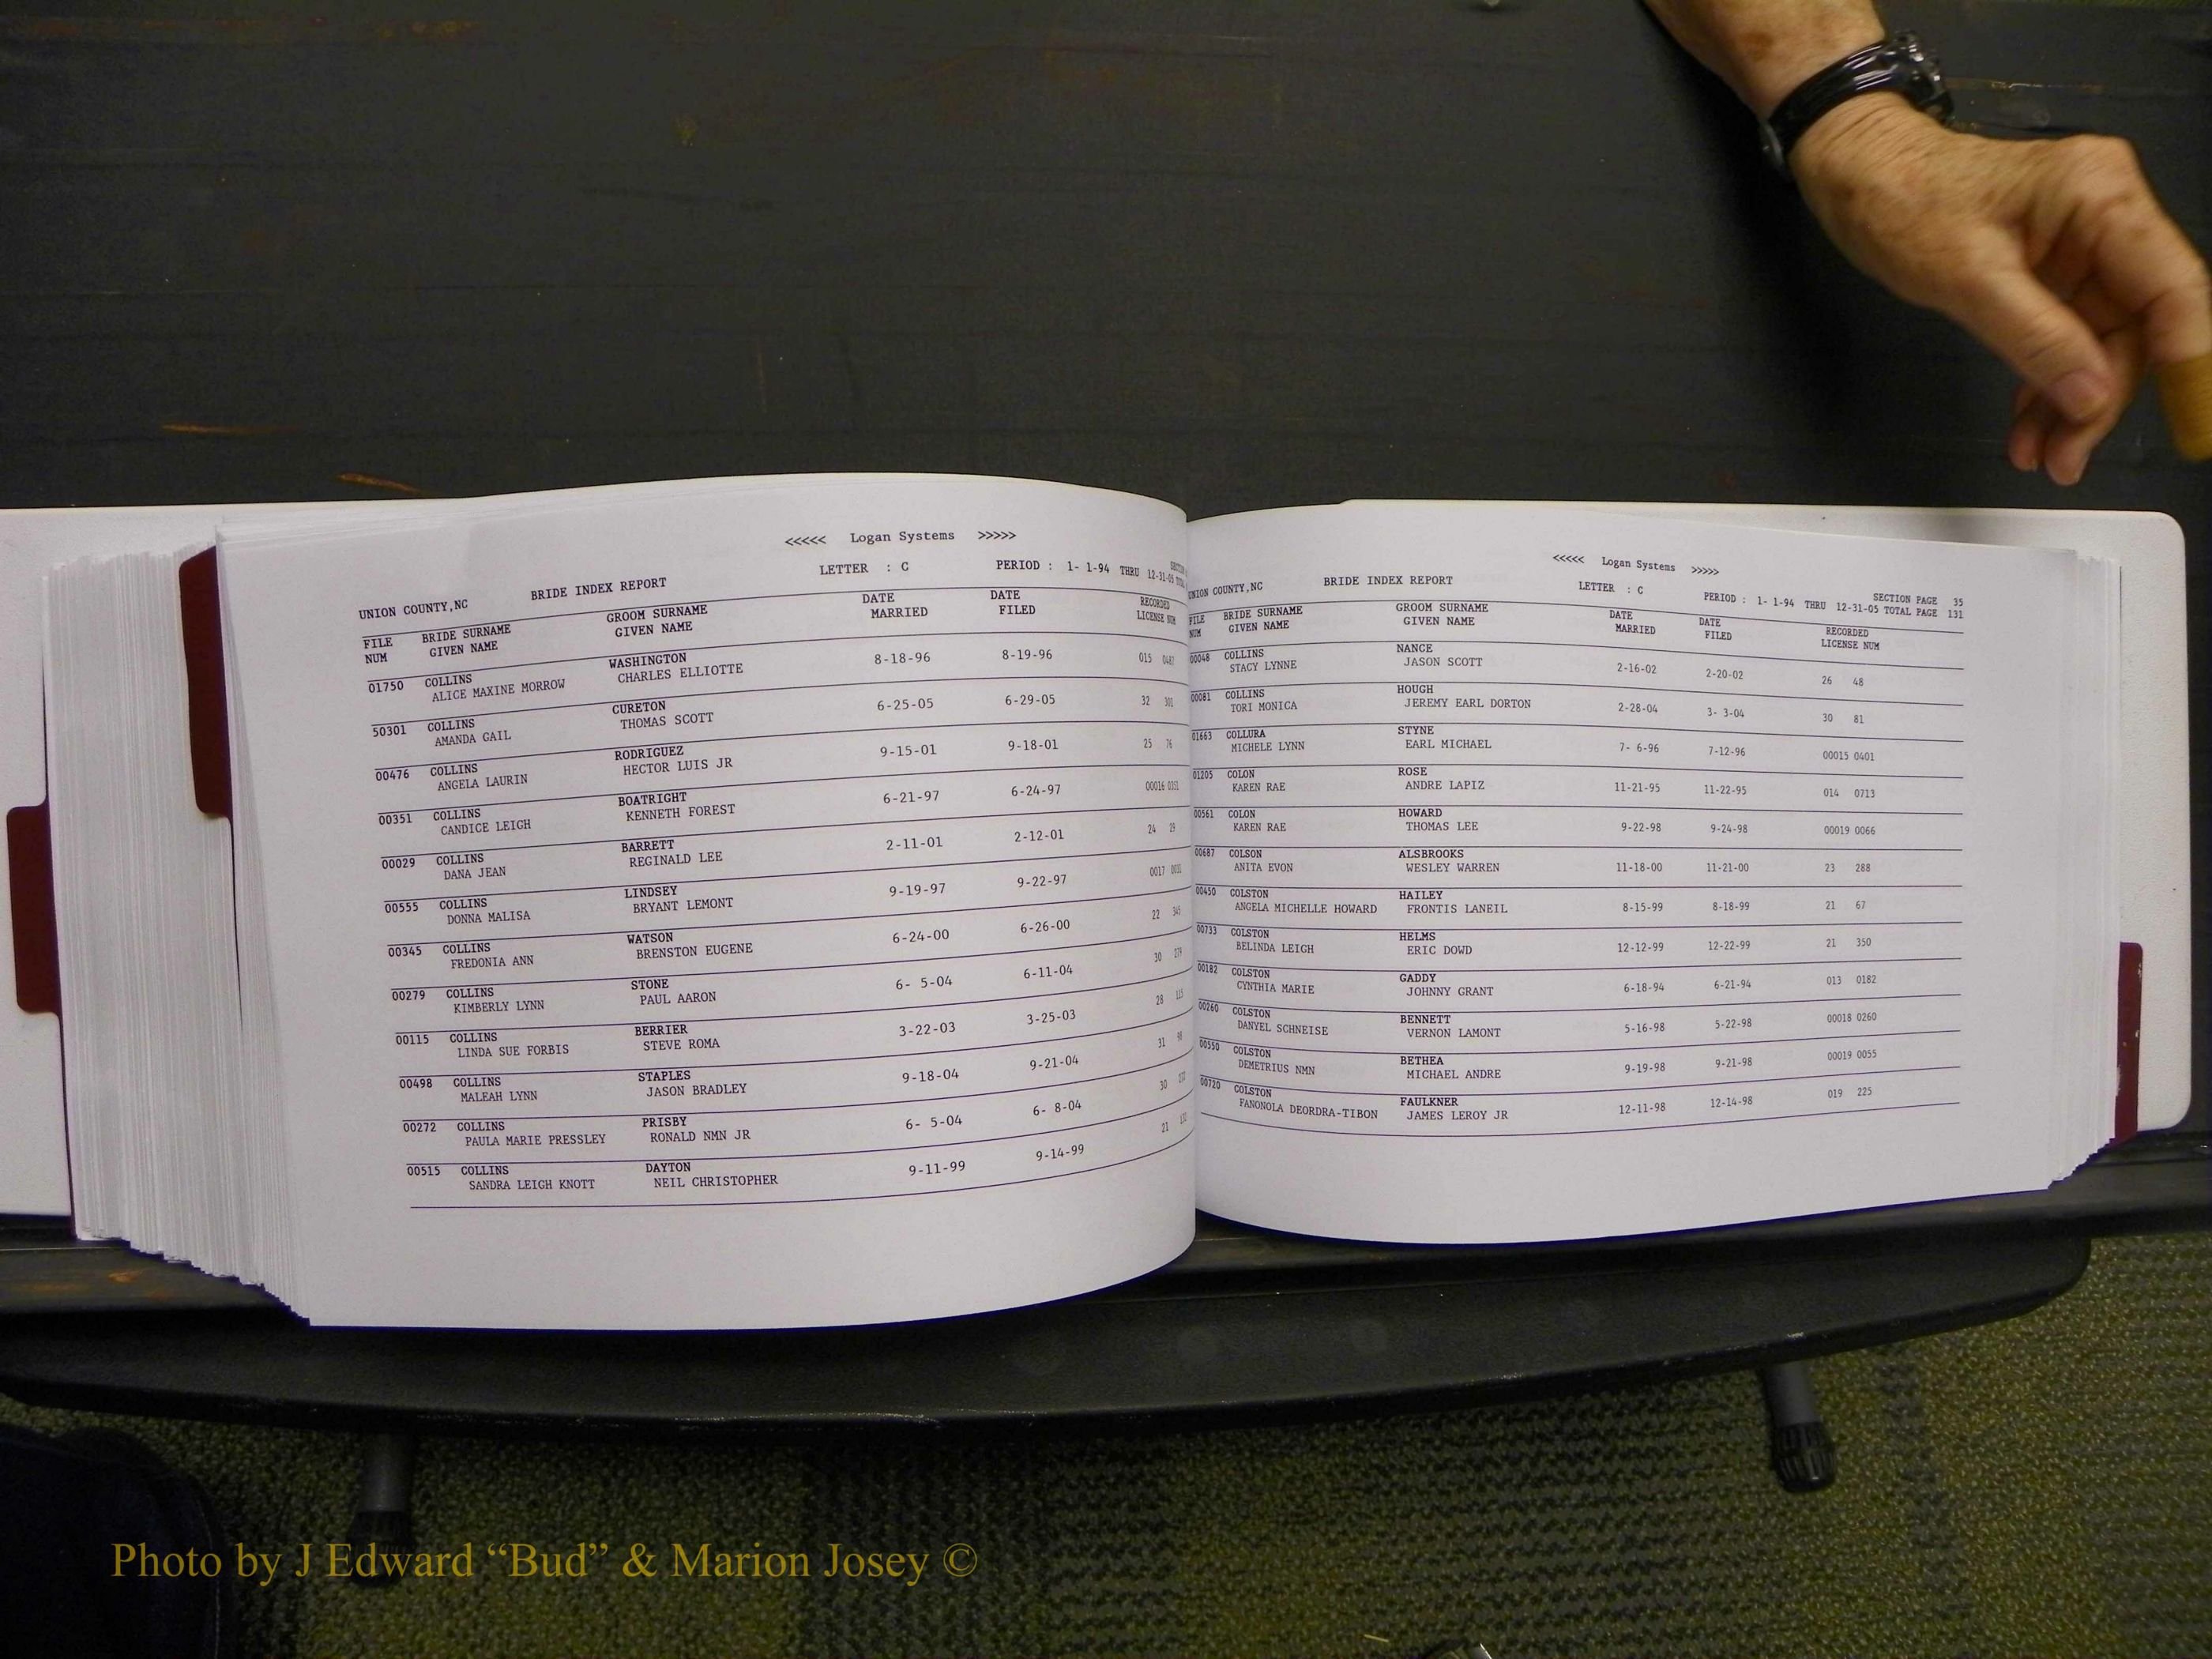 <<<<< Logan Systems >>>>>
UNION COUNTY,NC BRIDE INDEX REPORT LETTER : C PERIOD : 1- 1-94 THRU 12-31-05
FILE BRIDE SURNAME GROOM SURNAME DATE DATE RECORDED
NUM GIVEN NAME GIVEN NAME MARRIED FILED LICENSE NUM
01750 COLLINS WASHINGTON 8-18-96 8-19-96 015
ALICE MAXINE MORROW CHARLES ELLIOTTE
50301 COLLINS CURETON 6-25-05 6-29-05 32 301
AMANDA GAIL THOMAS SCOTT
00476 COLLINS RODRIGUEZ 9-15-01 9-18-01 25 76
ANGELA LAURIN HECTOR LUIS JR
00351 COLLINS BOATRIGHT 6-21-97 6-24-97 00016
CANDICE LEIGH KENNETH FOREST
00029 COLLINS BARRETT 2-11-01 2-12-01 24 29
DANA JEAN REGINALD LEE
00555 COLLINS LINDSEY 9-19-97 9-22-97 0017
DONNA MALISA BRYANT LEMONT
00345 COLLINS WATSON 6-24-00 6-26-00 22 345
FREDONIA ANN BRENSTON EUGENE
00279 COLLINS STONE 6- 5-04 6-11-04 30 279
KIMBERLY LYNN PAUL AARON
00115 COLLINS BERRIER 3-22-03 3-25-03 28 115
LINDA SUE FORBIS STEVE ROMA
00498 COLLINS STAPLES 9-18-04 9-21-04 31 98
MALEAH LYNN JASON BRADLEY
00272 COLLINS PRISBY 6- 5-04 6- 8-04 30 272
PAULA MARIE PRESSLEY RONALD NMN JR
00515 COLLINS DAYTON 9-11-99 9-14-99 21 132
SANDRA LEIGH KNOTT NEIL CHRISTOPHER
<<<<< Logan Systems >>>>>
UNION COUNTY,NC BRIDE INDEX REPORT LETTER : C SECTION PAGE 35
PERIOD : 1- 1-94 THRU 12-31-05 TOTAL PAGE 131
FILE BRIDE SURNAME GROOM SURNAME DATE DATE RECORDED
NUM GIVEN NAME GIVEN NAME MARRIED FILED LICENSE NUM
00048 COLLINS NANCE 2-16-02 2-20-02 26 48
STACY LYNNE JASON SCOTT
00081 COLLINS HOUGH 2-28-04 3- 3-04 30 81
TORI MONICA JEREMY EARL DORTON
01663 COLLURA STYNE 7- 6-96 7-12-96 00015 0401
MICHELE LYNN EARL MICHAEL
01205 COLON ROSE 11-21-95 11-22-95 014 0713
KAREN RAE ANDRE LAPIZ
00561 COLON HOWARD 9-22-98 9-24-98 00019 0066
KAREN RAE THOMAS LEE
00687 COLSON ALSBROOKS 11-18-00 11-21-00 23 288
ANITA EVON WESLEY WARREN
00450 COLSTON HAILEY 8-15-99 8-18-99 21 67
ANGELA MICHELLE HOWARD FRONTIS LANEIL
00733 COLSTON HELMS 12-12-99 12-22-99 21 350
BELINDA LEIGH ERIC DOWD
00182 COLSTON GADDY 6-18-94 6-21-94 013 0182
CYNTHIA MARIE JOHNNY GRANT
00260 COLSTON BENNETT 5-16-98 5-22-98 00018 0260
DANYEL SCHNEISE VERNON LAMONT
00550 COLSTON BETHEA 9-19-98 9-21-98 00019 0055
DEMETRIUS NMN MICHAEL ANDRE
00720 COLSTON FAULKNER 12-11-98 12-14-98 019 225
FANONOLA DEORDRA-TIBON JAMES LEROY JR
Photo by J Edward “Bud” & Marion Josey ©